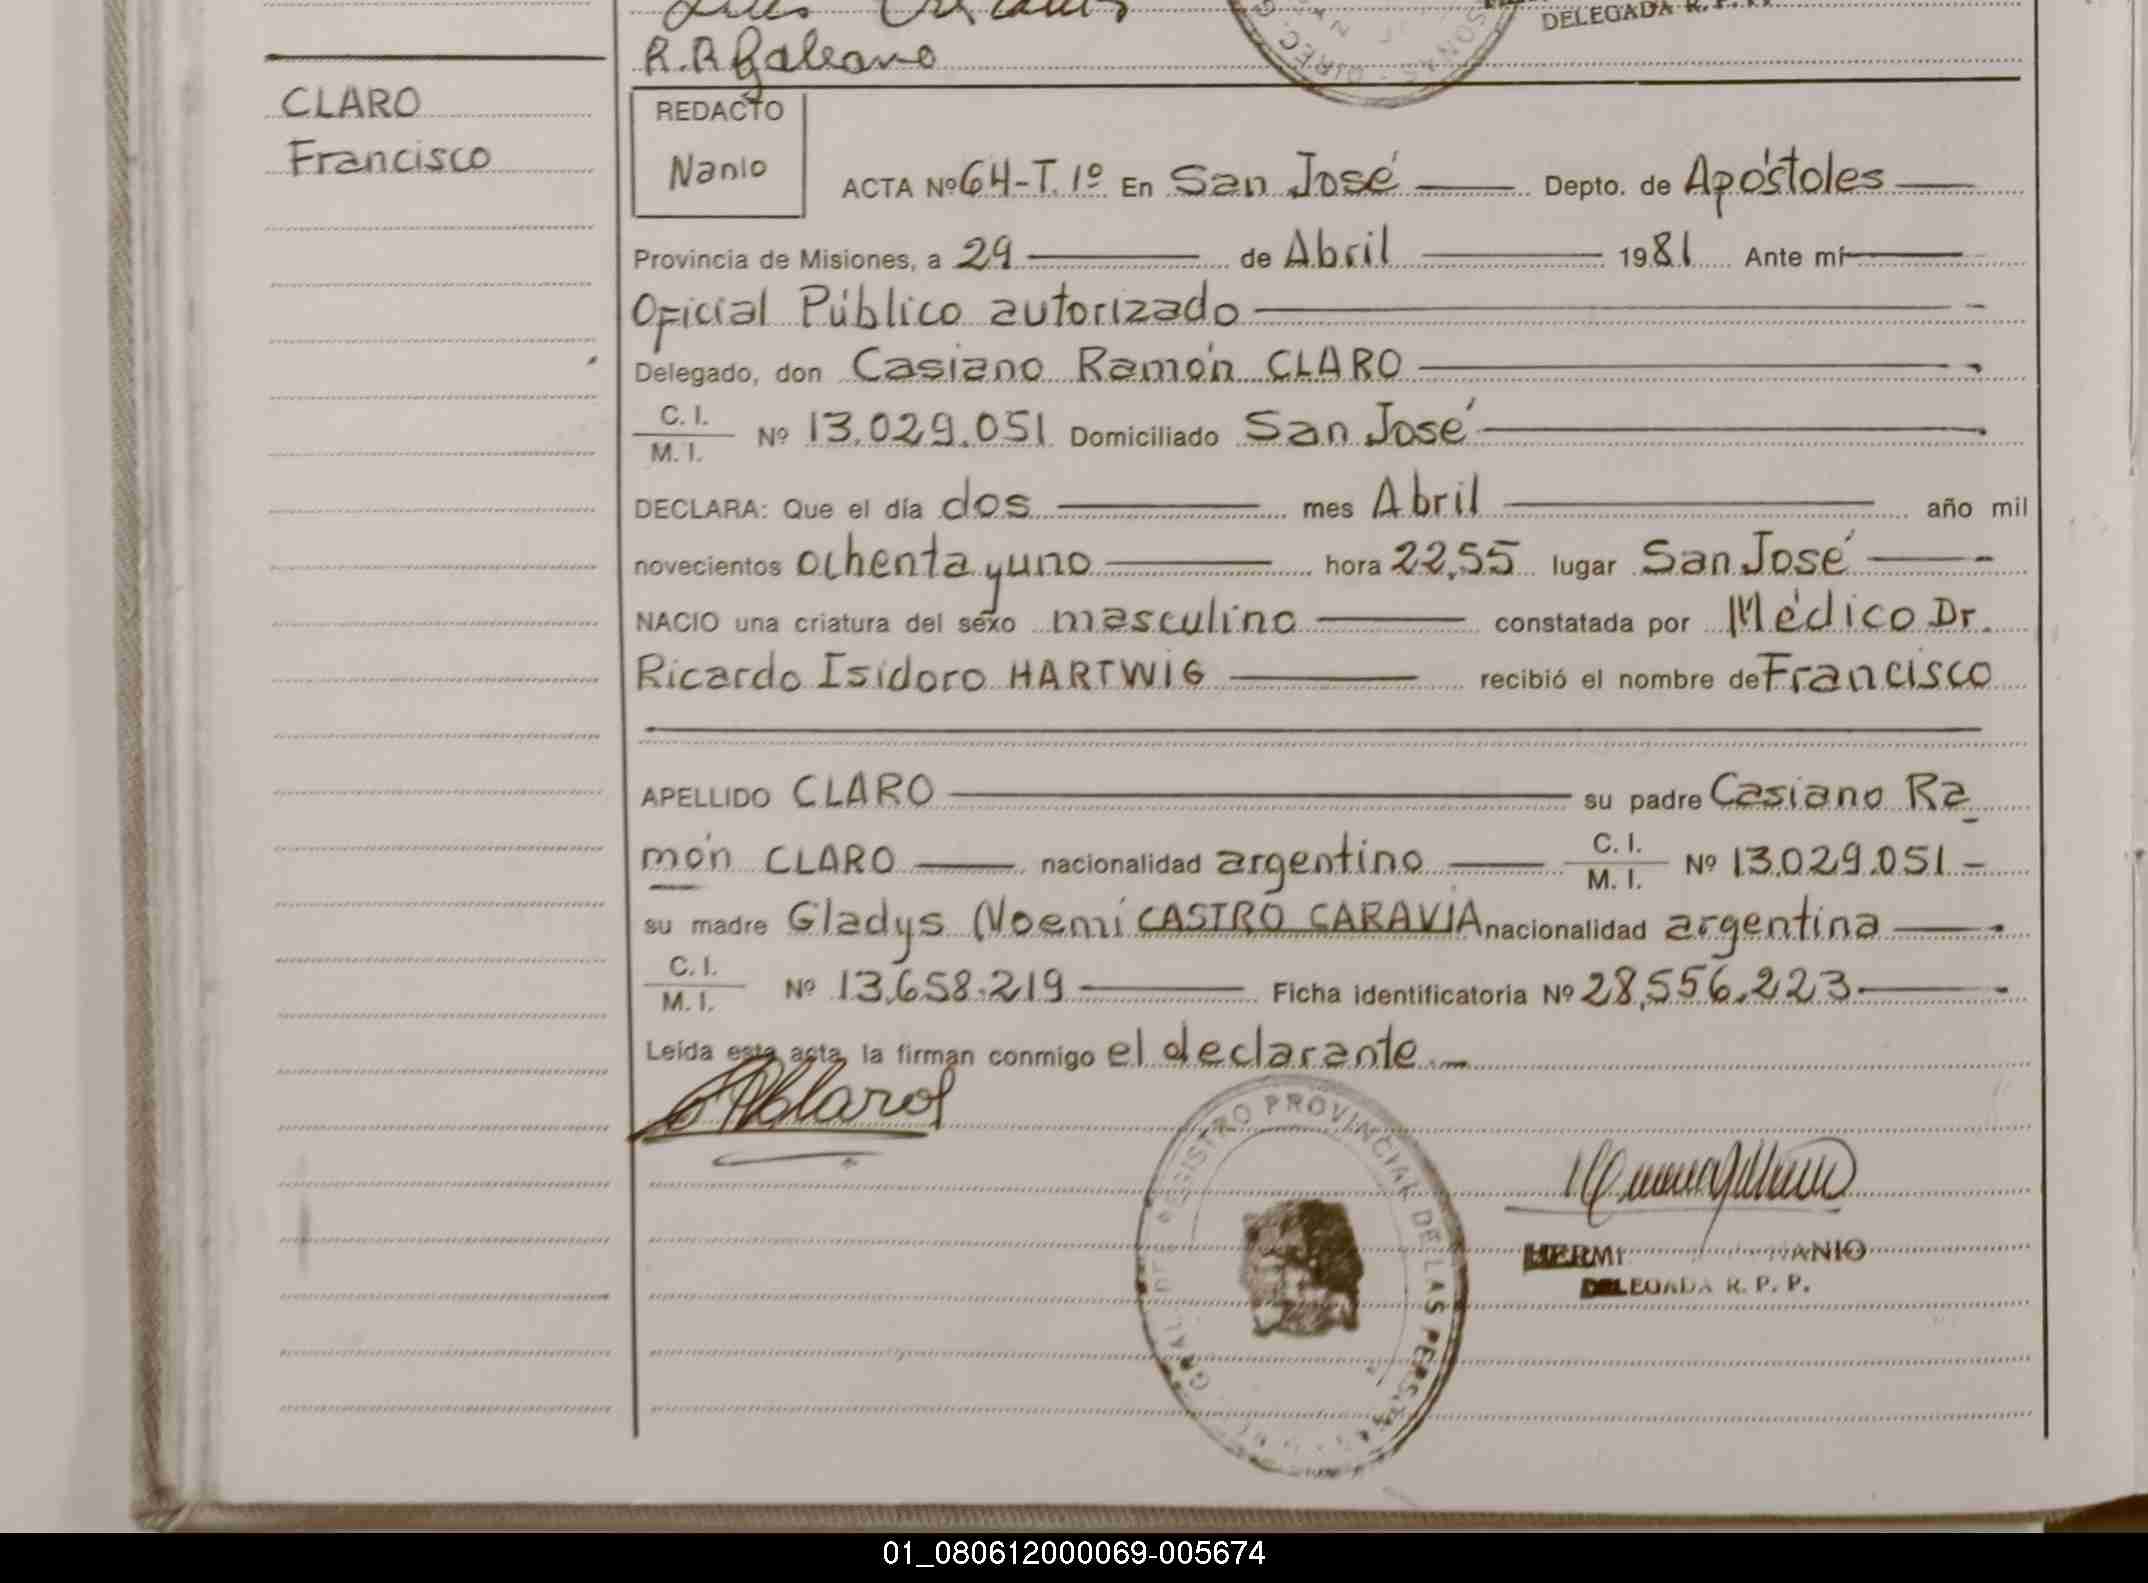 DELEGADA R. P. P.
R.R. Galeano
CLARO
Francisco
REDACTO
Nanio
ACTA Nº 64-T.1º En San José Depto. de Apóstoles
Provincia de Misiones, a 29 de Abril 1981 Ante mí
Oficial Público autorizado
Delegado, don Casiano Ramón CLARO
C. I.
M. I. Nº 13.029.051 Domiciliado San José
DECLARA: Que el día dos mes Abril año mil
novecientos ochenta y uno hora 22,55 lugar San José
NACIO una criatura del sexo masculino constatada por Médico Dr.
Ricardo Isidoro HARTWIG recibió el nombre de Francisco
APELLIDO CLARO su padre Casiano Ra
món CLARO nacionalidad argentino C. I. M. I. Nº 13.029.051
su madre Gladys Noemí CASTRO CARAVIA nacionalidad argentina
C. I.
M. I. Nº 13.658.219 Ficha identificatoria Nº 28.556.223
Leída esta acta, la firman conmigo el declarante.
REGISTRO PROVINCIAL DE LAS PERSONAS
HERMI NANIO
DELEGADA R. P. P.
01_080612000069-005674